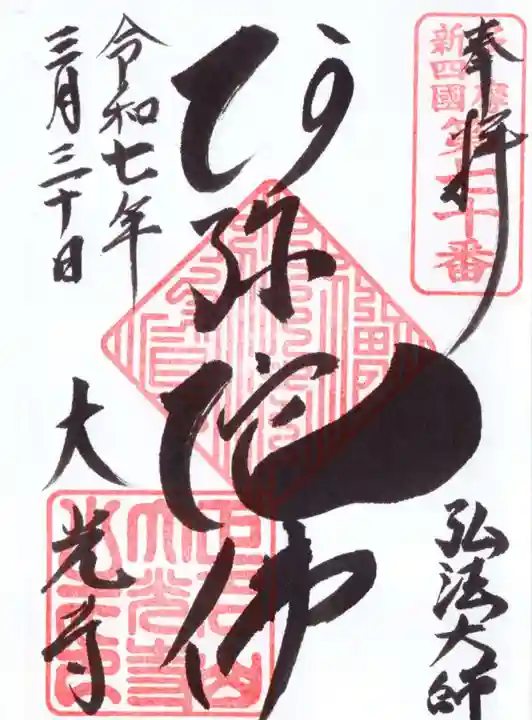 奉拝
新四國
第七十番
弘法大師
阿弥陀佛
令和七年
三月三十日
大光寺